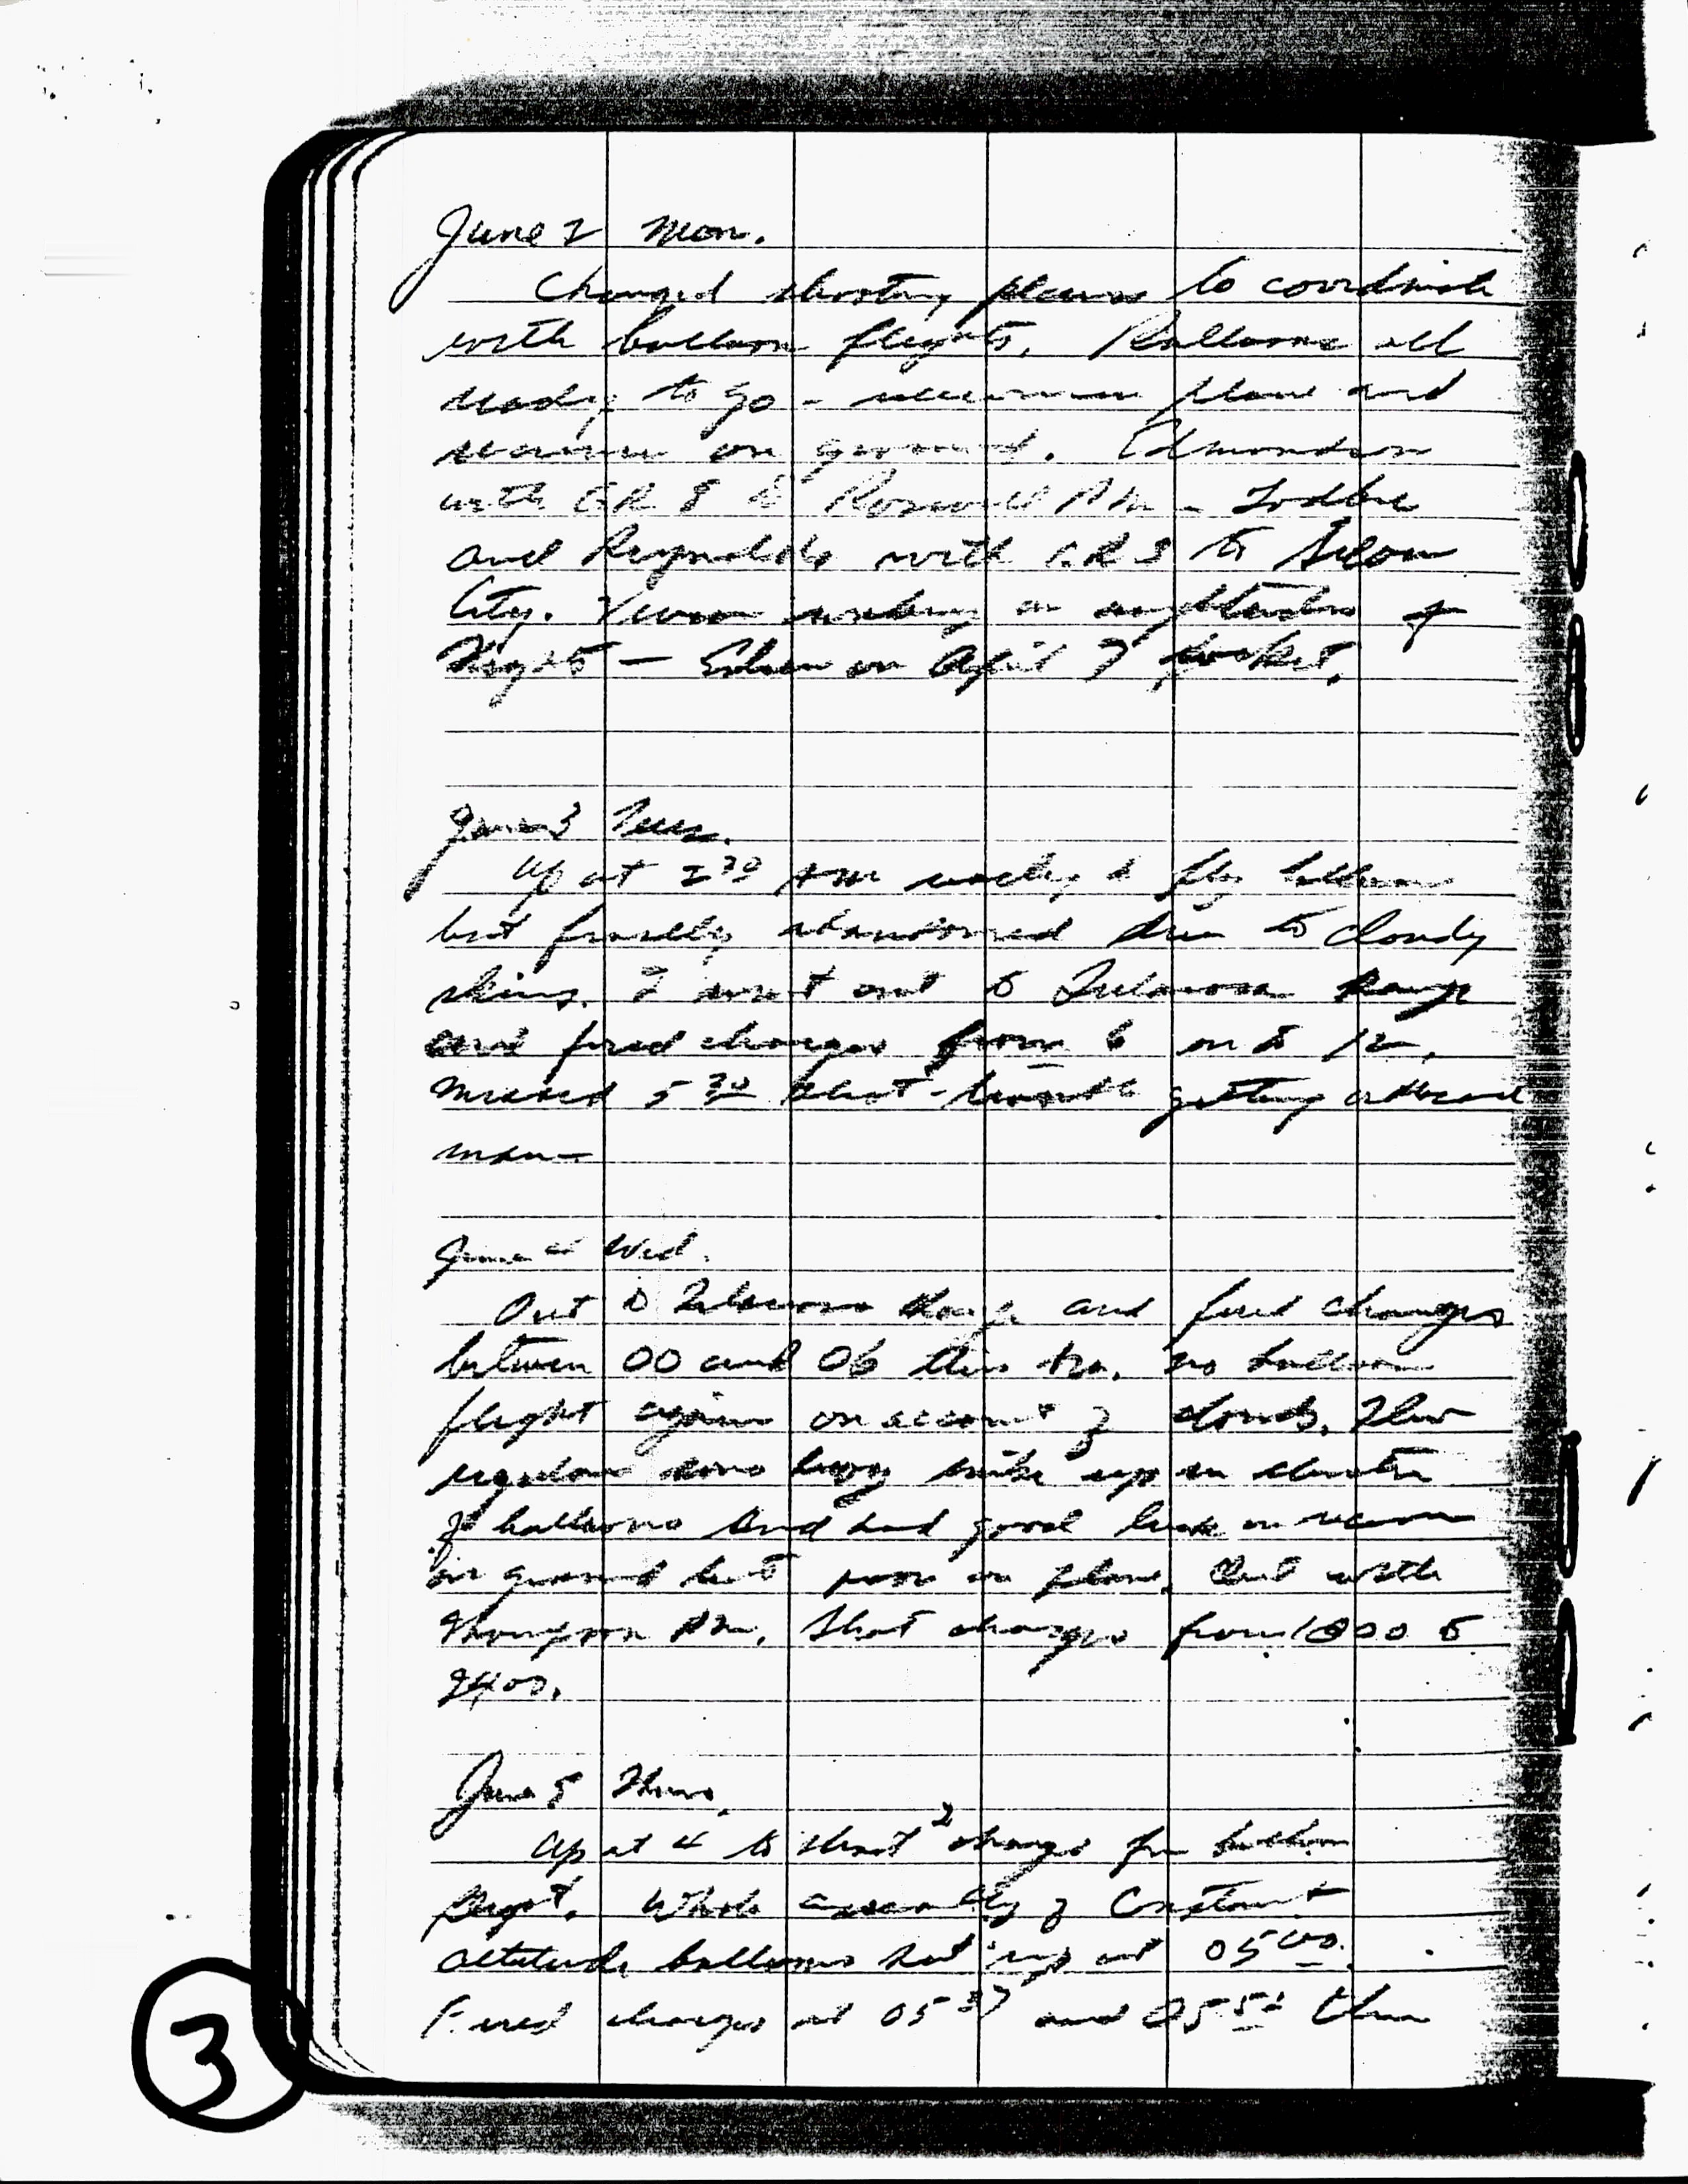 June 2 Mon.
Changed shooting plans to coordinate
with balloon flights. Balloons all
ready to go - receivers in plane and
receiver on ground. Edmondson
with GR 8 to Roswell PM -
and Reynolds with GR 3 to Silver
City. Vivian working on
flights - on April rocket.
June 3 Tues.
Up at 2 30 AM ready to fly balloon
but finally abandoned due to cloudy
skies. I went out to Tularosa Range
and fired charges from 6 on to 12.
Missed 5 30 shot - trouble getting ordnance
man -
June 4 Wed.
Out to Tularosa Range and fired charges
between 00 and 06 this AM. No balloon
flight again on account of clouds. Flew
regular sono buoy mike up in cluster
of balloons and had good luck on receiver
on ground but poor on plane. Out with
Thompson PM. Shot charges from 1800 to
2400.
June 5 Thurs.
Up at 4 to shoot 2 charges for balloon
flight. Whole assembly of constant
altitude balloons set up at 0500.
Fired charges at 05 37 and 05 then
3